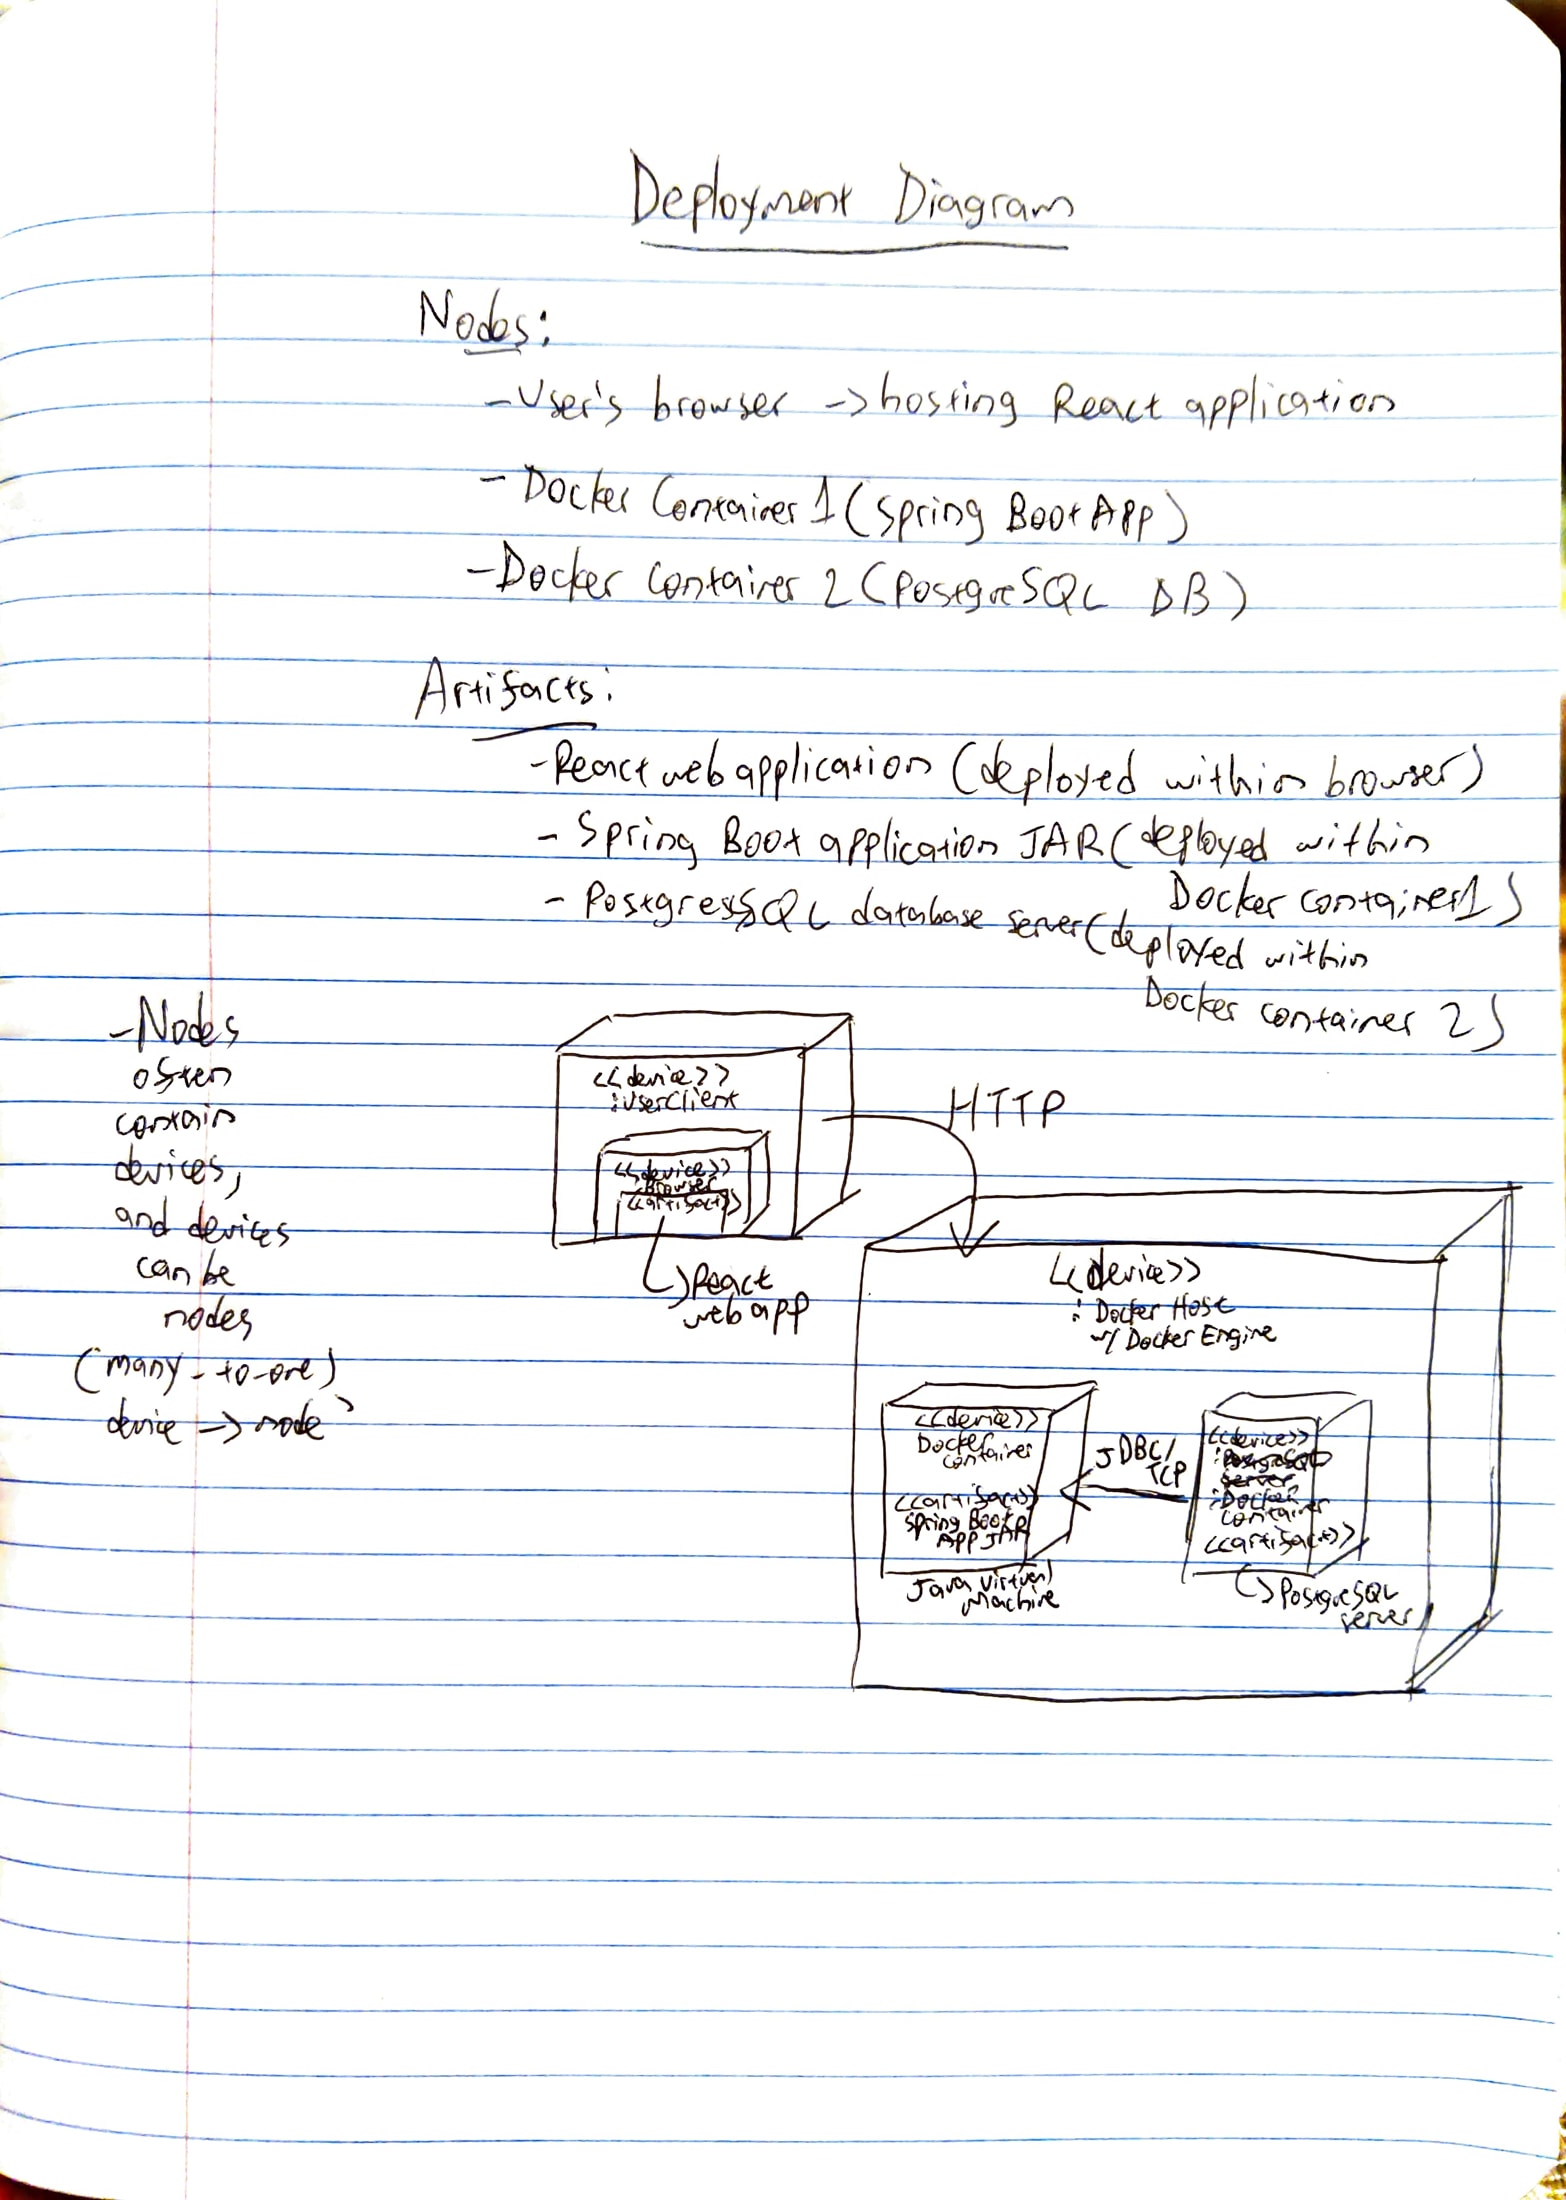 Deployment Diagram
Nodes:
- User's browser -> hosting React application
- Docker Container 1 (Spring Boot App)
- Docker Container 2 (PostgreSQL DB)
Artifacts:
- React web application (deployed within browser)
- Spring Boot application JAR (deployed within
Docker container 1)
- PostgresSQL database server (deployed within
Docker container 2)
- Nodes
often
contain
devices,
and devices
can be
nodes
(many-to-one)
device -> node
<<device>>
:UserClient
<<device>>
:Browser
<<artifact>>
React
web app
HTTP
<<device>>
: Docker Host
w/ Docker Engine
<<device>>
Docker
container
<<artifact>>
Spring Boot
APP JAR
Java Virtual
Machine
JDBC/
TCP
<<device>>
:Docker
container
<<artifact>>
PostgreSQL
server